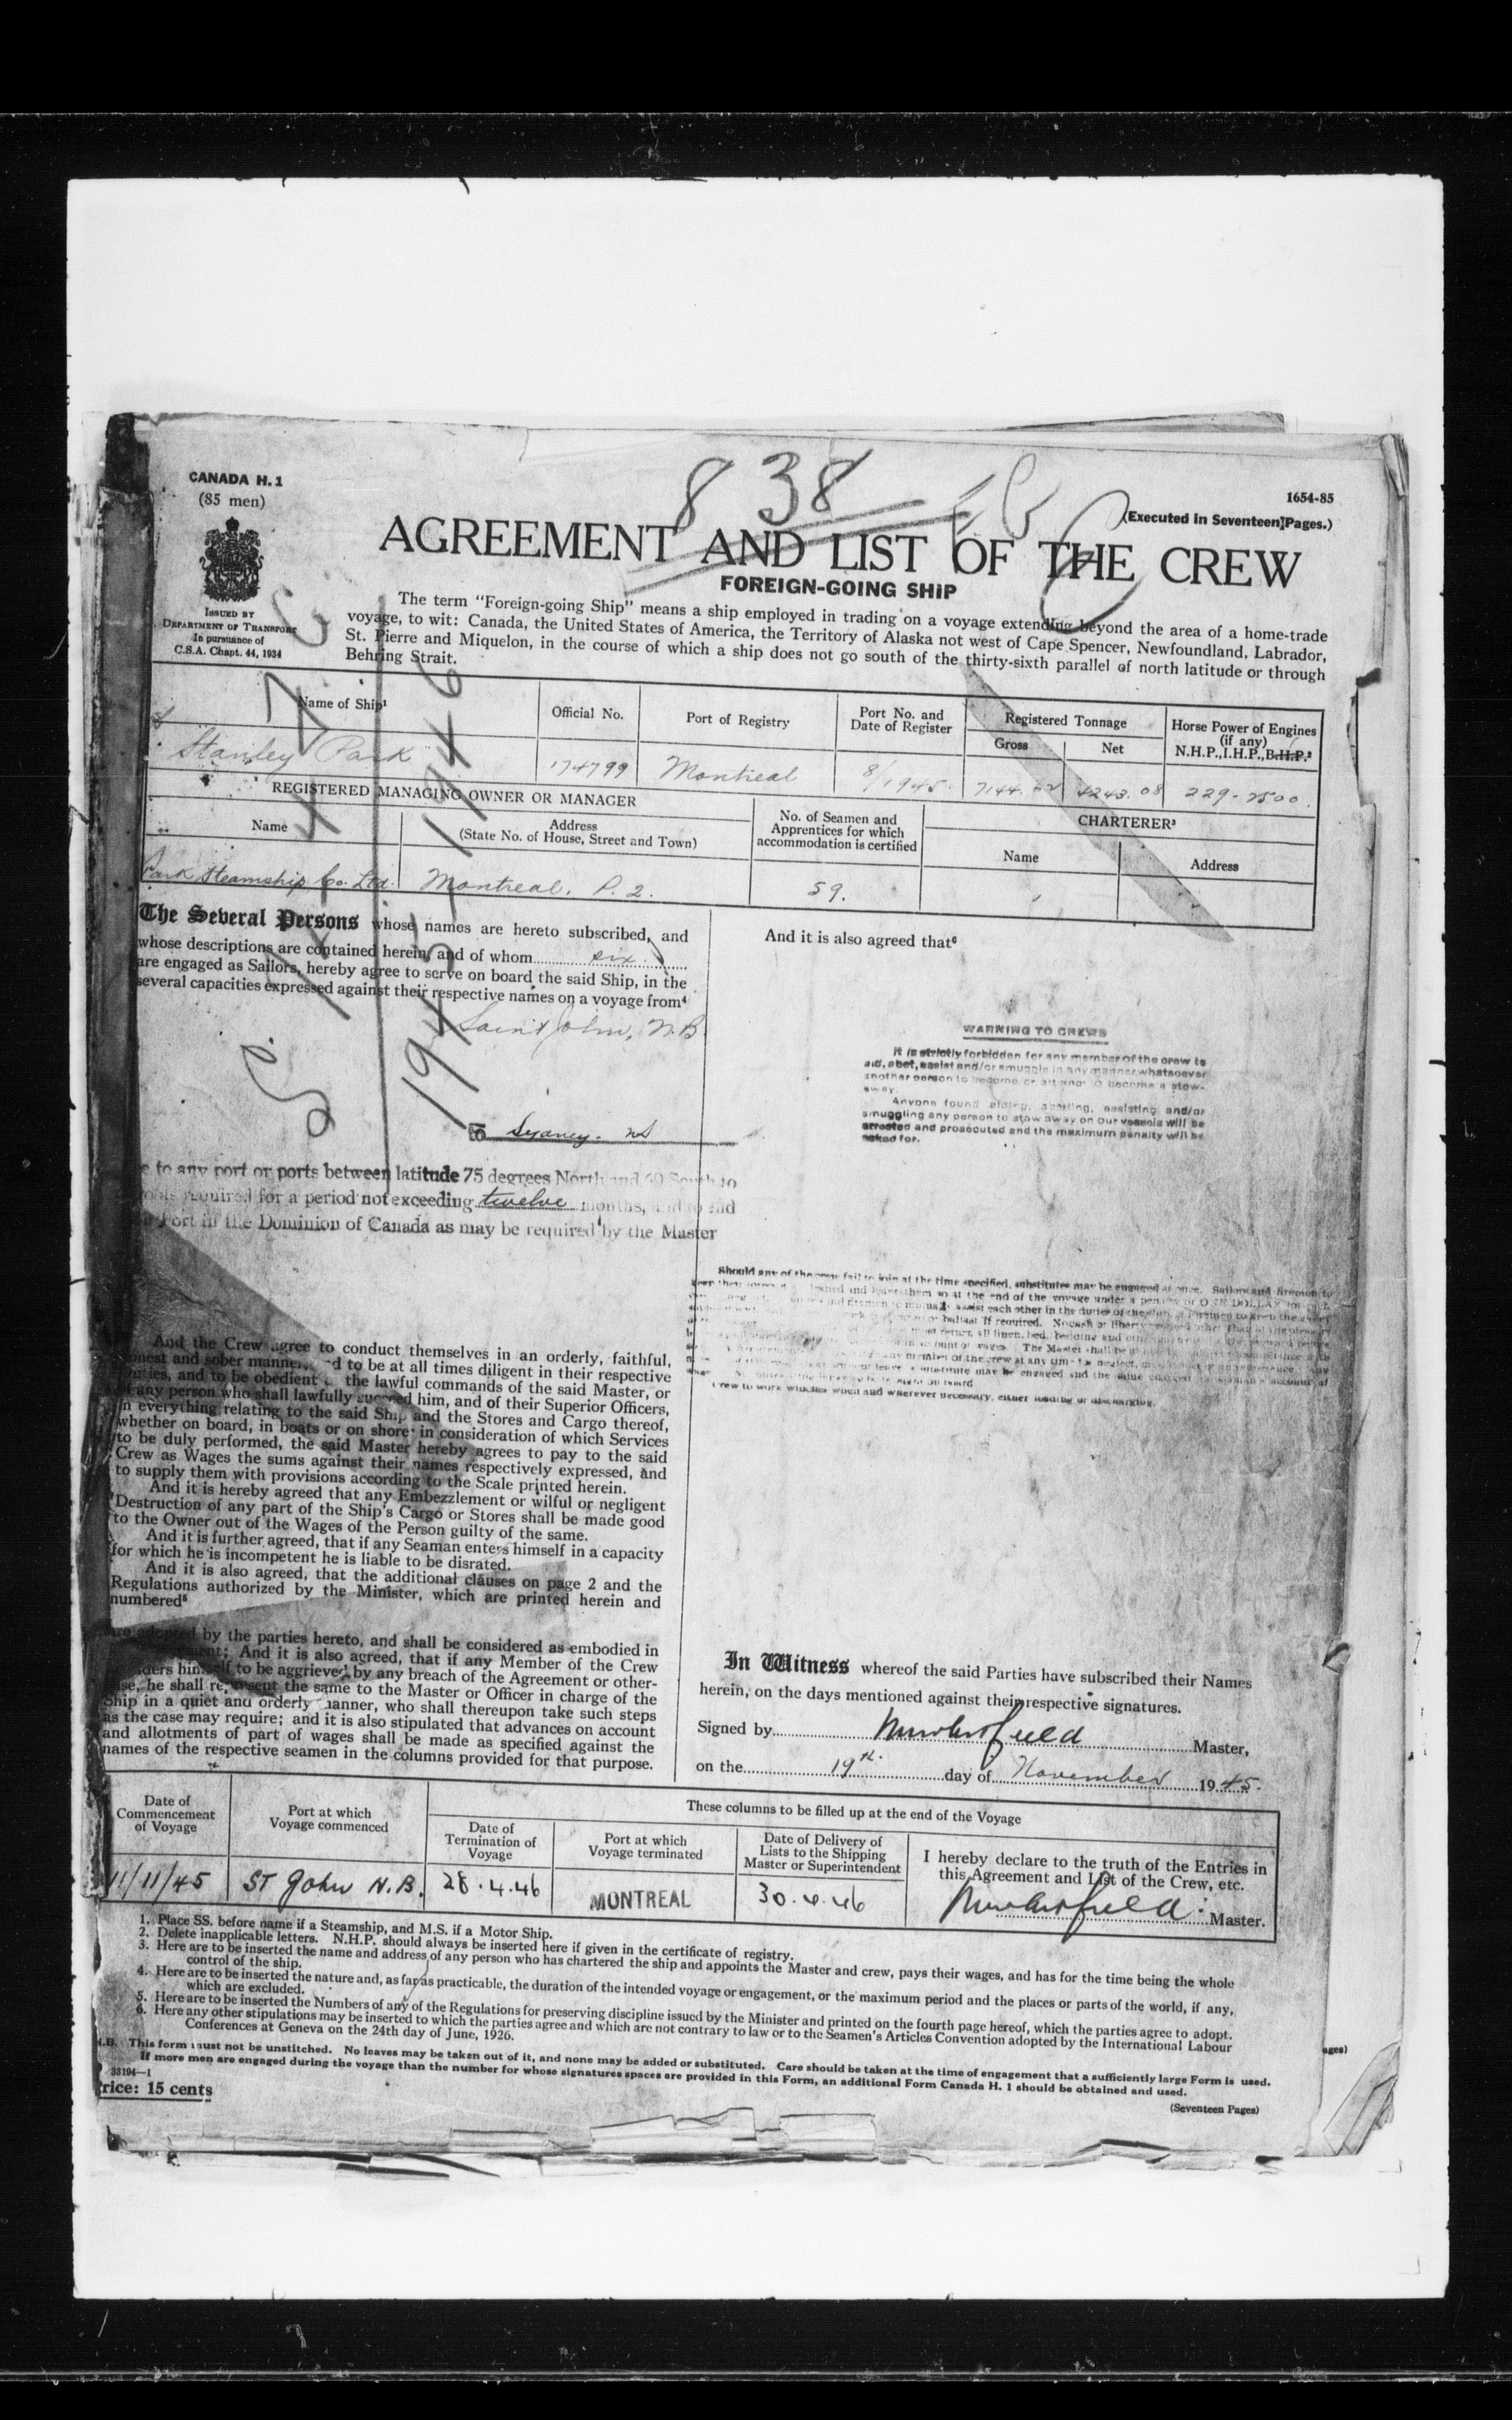 CANADA H. 1
(85 men)
838
1654-85
(Executed in Seventeen Pages.)
AGREEMENT AND LIST OF THE CREW
FOREIGN-GOING SHIP
ISSUED BY
DEPARTMENT OF TRANSPORT
In pursuance of
C.S.A. Chapt. 44, 1934
The term "Foreign-going Ship" means a ship employed in trading on a voyage extending beyond the area of a home-trade
voyage, to wit: Canada, the United States of America, the Territory of Alaska not west of Cape Spencer, Newfoundland, Labrador,
St. Pierre and Miquelon, in the course of which a ship does not go south of the thirty-sixth parallel of north latitude or through
Behring Strait.
Name of Ship¹
Official No.
Port of Registry
Port No. and
Date of Register
Registered Tonnage
Gross
Net
Horse Power of Engines
(if any)
N.H.P.,I.H.P.,B.H.P.²
Stanley Park
174799
Montreal
8/1945.
7144.02
4243.08
229-2500.
REGISTERED MANAGING OWNER OR MANAGER
Name
Address
(State No. of House, Street and Town)
No. of Seamen and
Apprentices for which
accommodation is certified
CHARTERER³
Name
Address
Park Steamship Co. Ltd.
Montreal. P. 2.
59.
The Several Persons whose names are hereto subscribed, and
whose descriptions are contained herein, and of whom six
are engaged as Sailors, hereby agree to serve on board the said Ship, in the
several capacities expressed against their respective names on a voyage from⁴
Saint John, N.B.
to Sydney. NS
to any port or ports between latitude 75 degrees North and 60 South to
required for a period not exceeding twelve months, and to end
Port in the Dominion of Canada as may be required by the Master
And the Crew agree to conduct themselves in an orderly, faithful,
honest and sober manner, and to be at all times diligent in their respective
duties, and to be obedient to the lawful commands of the said Master, or
of any person who shall lawfully succeed him, and of their Superior Officers,
in everything relating to the said Ship and the Stores and Cargo thereof,
whether on board, in boats or on shore: in consideration of which Services
to be duly performed, the said Master hereby agrees to pay to the said
Crew as Wages the sums against their names respectively expressed, and
to supply them with provisions according to the Scale printed herein.
And it is hereby agreed that any Embezzlement or wilful or negligent
Destruction of any part of the Ship's Cargo or Stores shall be made good
to the Owner out of the Wages of the Person guilty of the same.
And it is further agreed, that if any Seaman enters himself in a capacity
for which he is incompetent he is liable to be disrated.
And it is also agreed, that the additional clauses on page 2 and the
Regulations authorized by the Minister, which are printed herein and
numbered⁵
are adopted by the parties hereto, and shall be considered as embodied in
And it is also agreed, that if any Member of the Crew
himself to be aggrieved by any breach of the Agreement or other-
wise, he shall represent the same to the Master or Officer in charge of the
Ship in a quiet and orderly manner, who shall thereupon take such steps
as the case may require; and it is also stipulated that advances on account
and allotments of part of wages shall be made as specified against the
names of the respective seamen in the columns provided for that purpose.
And it is also agreed that⁶
WARNING TO CREWS
It is strictly forbidden for any member of the crew to
aid, abet, assist and/or smuggle in any manner whatsoever
another person to become or attempt to become a stow-
away.
Anyone found aiding, abetting, assisting and/or
smuggling any person to stow away on our vessels will be
arrested and prosecuted and the maximum penalty will be
asked for.
Should any of the crew fail to join at the time specified, substitutes may be engaged at once. Sailors and firemen to
at the end of the voyage under a penalty of ONE DOLLAR
assist each other in the duties of the ship
ballast if required. No cash or liberty
all linen, bed, bedding and
The Master shall be
of the crew at any time
substitute may be engaged and the
Crew to work winches when and wherever necessary, either loading or discharging.
In Witness whereof the said Parties have subscribed their Names
herein, on the days mentioned against their respective signatures.
Signed by Master,
on the 19th. day of November 1945.
Date of
Commencement
of Voyage
Port at which
Voyage commenced
These columns to be filled up at the end of the Voyage
Date of
Termination of
Voyage
Port at which
Voyage terminated
Date of Delivery of
Lists to the Shipping
Master or Superintendent
I hereby declare to the truth of the Entries in
this Agreement and List of the Crew, etc.
Master.
11/11/45
ST John N.B.
28.4.46
MONTREAL
30.4.46
1. Place SS. before name if a Steamship, and M.S. if a Motor Ship.
2. Delete inapplicable letters. N.H.P. should always be inserted here if given in the certificate of registry.
3. Here are to be inserted the name and address of any person who has chartered the ship and appoints the Master and crew, pays their wages, and has for the time being the whole
control of the ship.
4. Here are to be inserted the nature and, as far as practicable, the duration of the intended voyage or engagement, or the maximum period and the places or parts of the world, if any,
which are excluded.
5. Here are to be inserted the Numbers of any of the Regulations for preserving discipline issued by the Minister and printed on the fourth page hereof, which the parties agree to adopt.
6. Here any other stipulations may be inserted to which the parties agree and which are not contrary to law or to the Seamen's Articles Convention adopted by the International Labour
Conferences at Geneva on the 24th day of June, 1926.
N.B. This form must not be unstitched. No leaves may be taken out of it, and none may be added or substituted. Care should be taken at the time of engagement that a sufficiently large Form is used.
If more men are engaged during the voyage than the number for whose signatures spaces are provided in this Form, an additional Form Canada H. 1 should be obtained and used.
33194—1
Price: 15 cents
(Seventeen Pages)
ages)